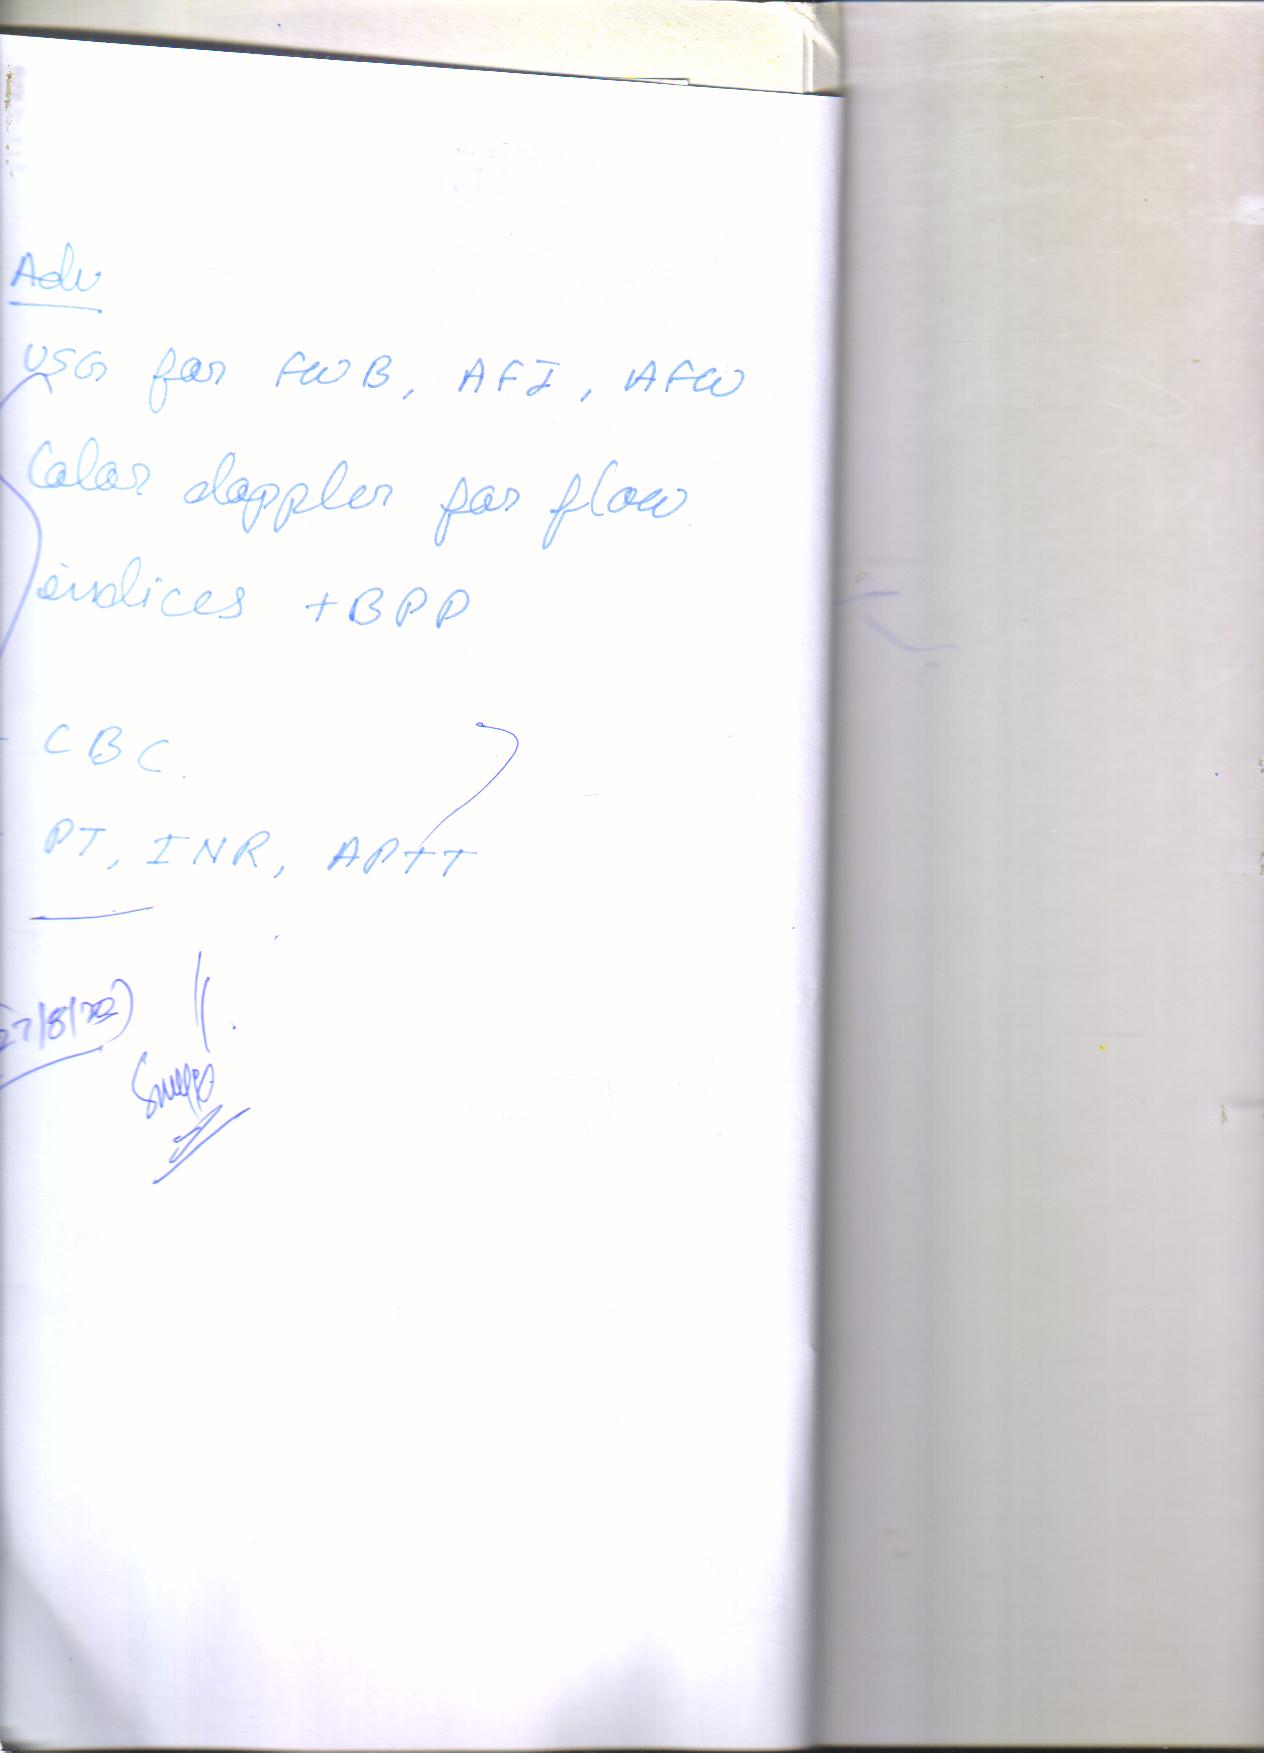 Adv
USG for FWB, AFI, AFW
Color doppler for flow
indices + BPP
CBC
PT, INR, APTT